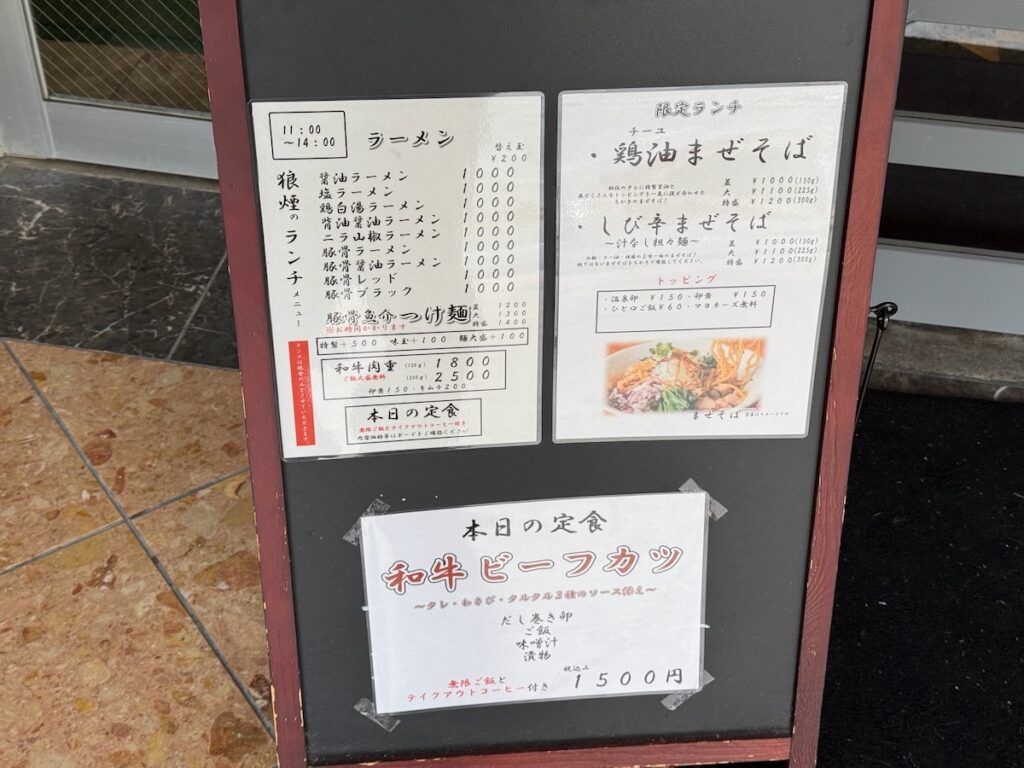 11:00
~14:00
ラーメン
替え玉
¥200
狼煙のランチメニュー
醤油ラーメン 1000
塩ラーメン 1000
鶏白湯ラーメン 1000
背油醤油ラーメン 1000
ニラ山椒ラーメン 1000
豚骨ラーメン 1000
豚骨醤油ラーメン 1000
豚骨レッド 1000
豚骨ブラック 1000
豚骨魚介つけ麺
並 1200
大 1300
特盛 1400
※お時間かかります
特製+500 味玉+100 麺大盛+100
和牛肉重 (150g) 1800
ご飯大盛無料 (200g) 2500
卵黄150・キムチ200
本日の定食
無限ご飯とテイクアウトコーヒー付き
内容価格等はボードをご確認ください
ランチは現金のみとさせていただきます。
限定ランチ
チーユ
・鶏油まぜそば
並 ¥1000(150g)
大 ¥1100(225g)
特盛 ¥1200(300g)
秘伝のタレに特製醤油と
具だくさんなトッピングを一気に混ぜ合わせた
ちかきのまぜそば!
・しび辛まぜそば
~汁なし担々麺~
並 ¥1000(150g)
大 ¥1100(225g)
特盛 ¥1200(300g)
トッピング
・温泉卵 ¥150・卵黄 ¥150
・ひと口ご飯¥60・マヨネーズ無料
まぜそば 写真はイメージです
本日の定食
和牛ビーフカツ
~タレ・わさび・タルタル3種のソース添え~
だし巻き卵
ご飯
味噌汁
漬物
無限ご飯と
テイクアウトコーヒー付き
税込み
1500円